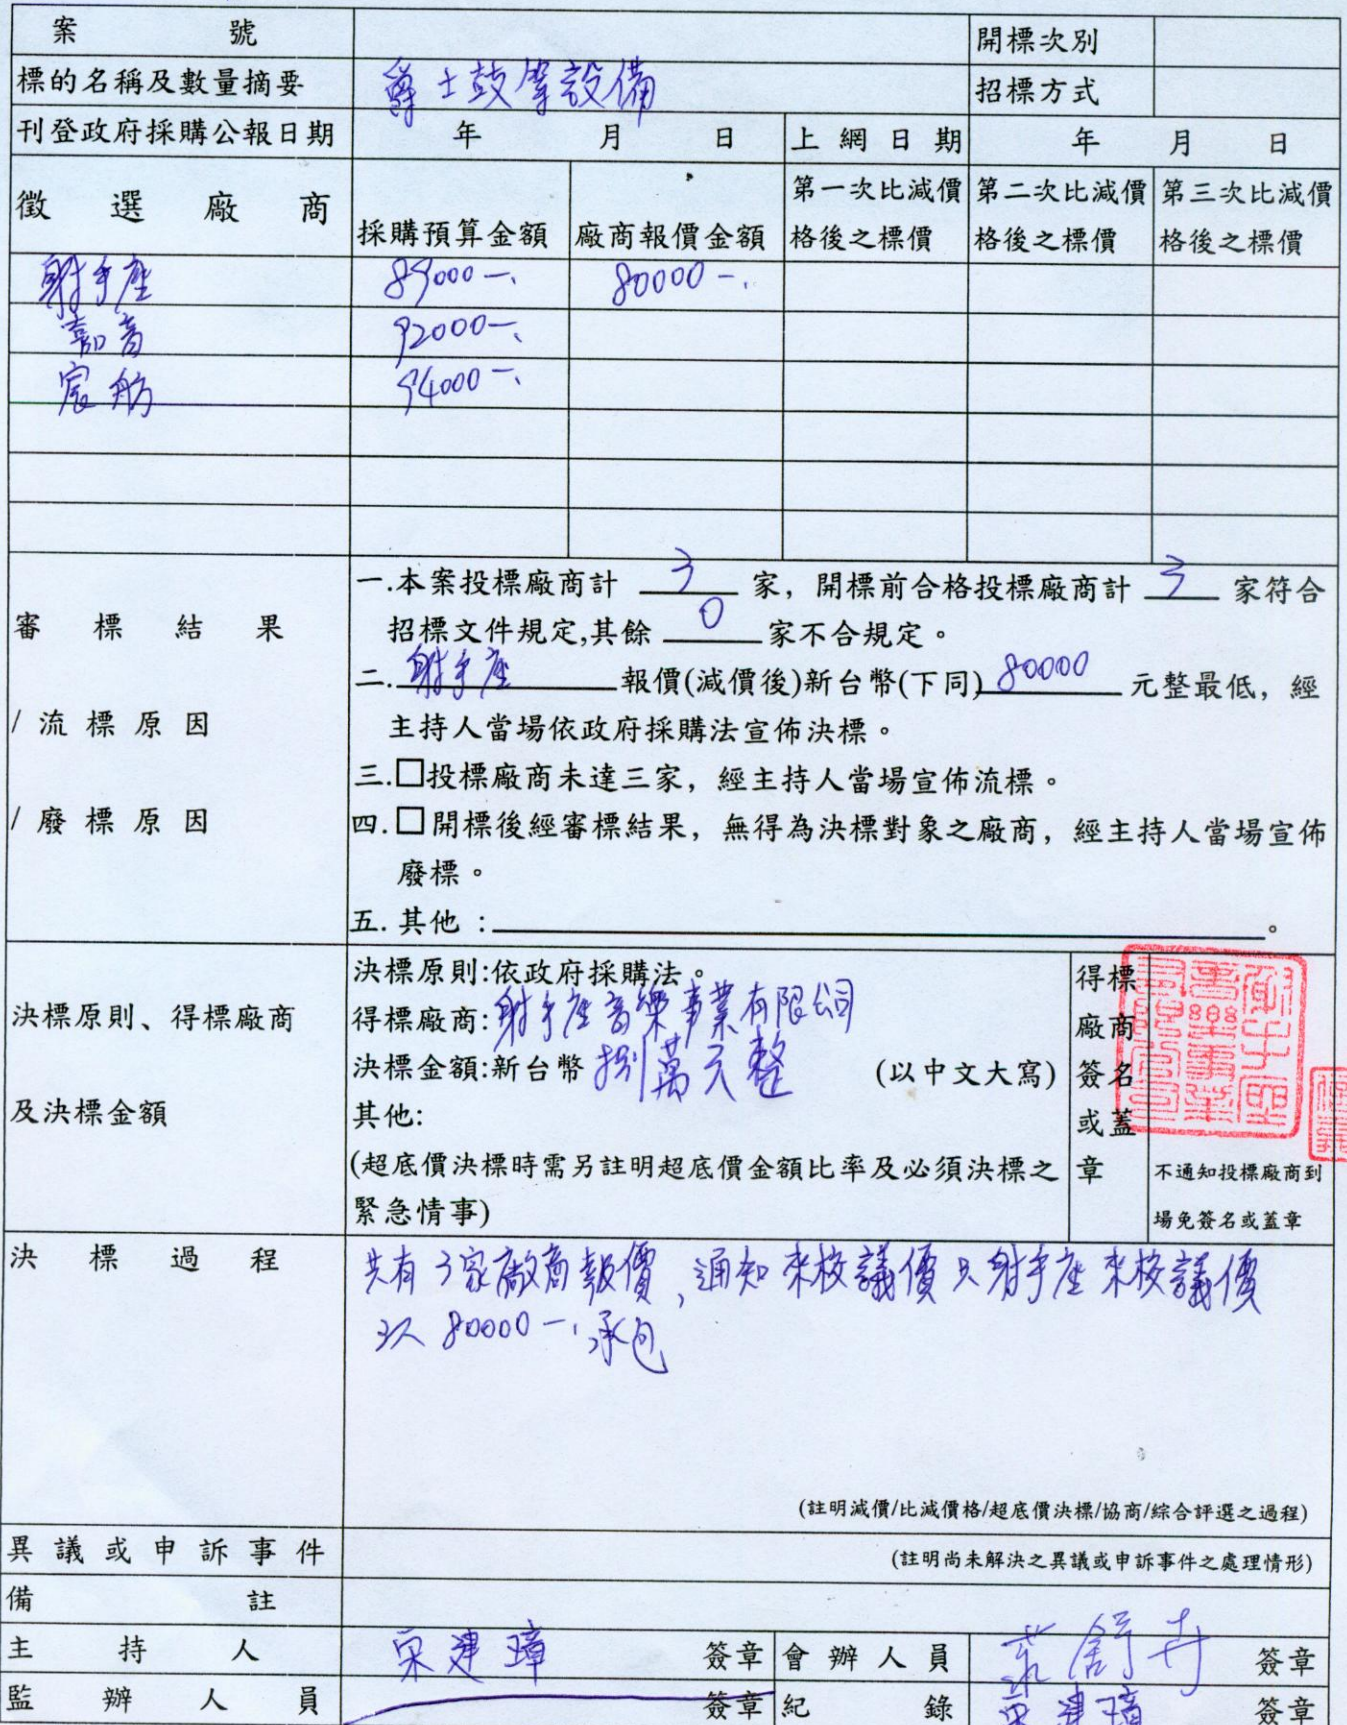 案 號 開標次別
標的名稱及數量摘要 爵士鼓等設備 招標方式
刊登政府採購公報日期 年 月 日 上網日期 年 月 日
徵選廠商 採購預算金額 廠商報價金額 第一次比減價格後之標價 第二次比減價格後之標價 第三次比減價格後之標價
射手座 89000-. 80000-.
嘉音 92000-.
宸舫 94000-.
審標結果
/流標原因
/廢標原因
一.本案投標廠商計 3 家，開標前合格投標廠商計 3 家符合
招標文件規定,其餘 0 家不合規定。
二.射手座 報價(減價後)新台幣(下同) 80000 元整最低，經
主持人當場依政府採購法宣佈決標。
三.□投標廠商未達三家，經主持人當場宣佈流標。
四.□開標後經審標結果，無得為決標對象之廠商，經主持人當場宣佈
廢標。
五.其他：。
決標原則、得標廠商
及決標金額
決標原則:依政府採購法。
得標廠商:射手座音樂事業有限公司
決標金額:新台幣 捌萬元整 (以中文大寫)
其他:
(超底價決標時需另註明超底價金額比率及必須決標之
緊急情事)
得標
廠商
簽名
或蓋
章
射手座
音樂事業
有限公司
不通知投標廠商到
場免簽名或蓋章
決標過程
共有3家廠商報價，通知來校議價只射手座來校議價
以80000-.承包
(註明減價/比減價格/超底價決標/協商/綜合評選之過程)
異議或申訴事件 (註明尚未解決之異議或申訴事件之處理情形)
備 註
主持人 建璋 簽章 會辦人員 舒卉 簽章
監辦人員 簽章 紀錄 建璋 簽章